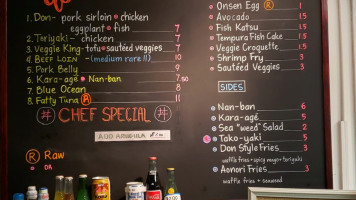 1. Don- pork sirloin chicken
eggplant fish 7
2. Teriyaki- chicken 7
3. Veggie King-tofu sautéed veggies 7
4. BEEF LOIN - (medium rare) 10
5. Pork Belly
6. Kara-age Nan-ban 7.50
7. Blue Ocean 8
8. Fatty Tuna R 11
CHEF SPECIAL
R Raw
OR
Onsen Egg R
Avocado 1.5
Fish Katsu
Tempura Fish Cake
Veggie Croquette
Shrimp Fry 3
Sautéed Veggies 3
SIDES
Nan-ban 6
Kara-age 5
Sea "weed" Salad 2
Tako-yaki 5
Don Style Fries 3
waffle fries + spicy mayo + teriyaki
Aonori Fries 3
waffle fries + seaweed